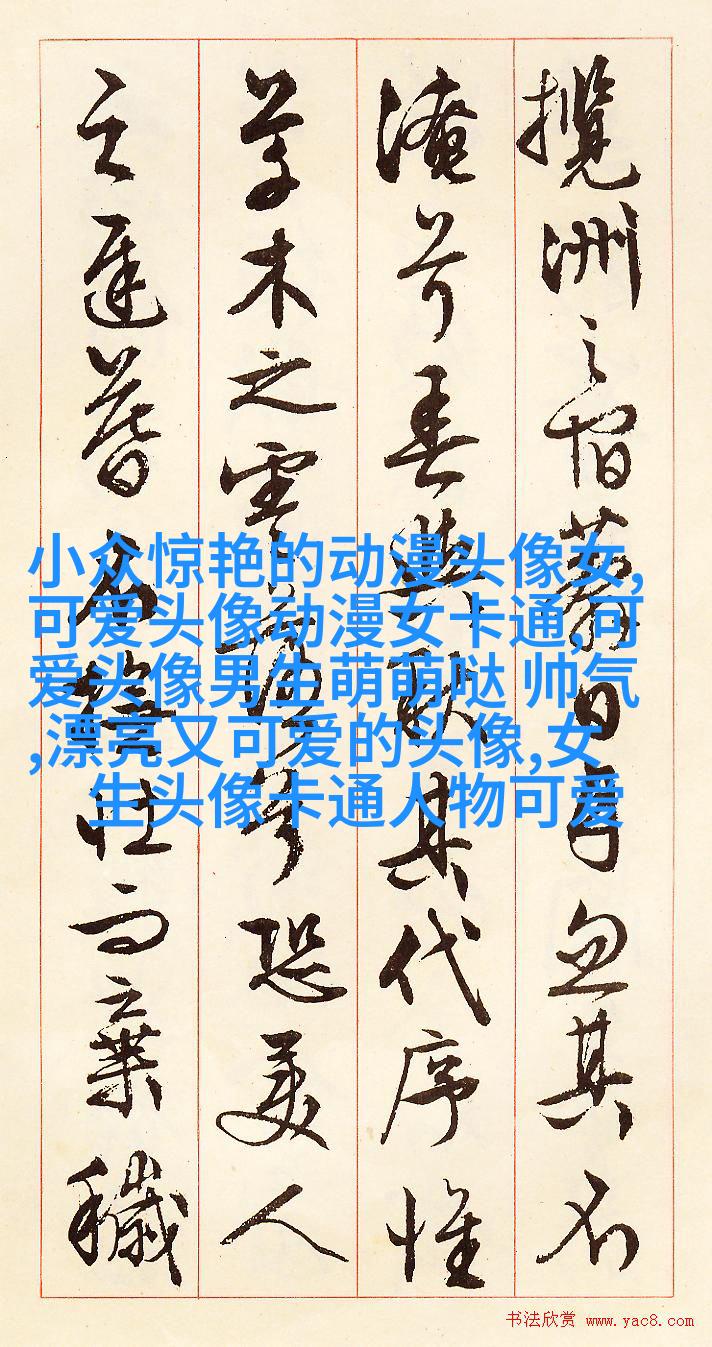 攬洲之宿莽日月忽其不
淹兮春與秋其代序惟
草木之零落兮恐美人
之遲暮不撫壯而棄穢
小众惊艳的动漫头像女,
可爱头像动漫女卡通,可
爱头像男生萌萌哒 帅气
,漂亮又可爱的头像,女
生头像卡通人物可爱
书法欣赏 www.yac8.com